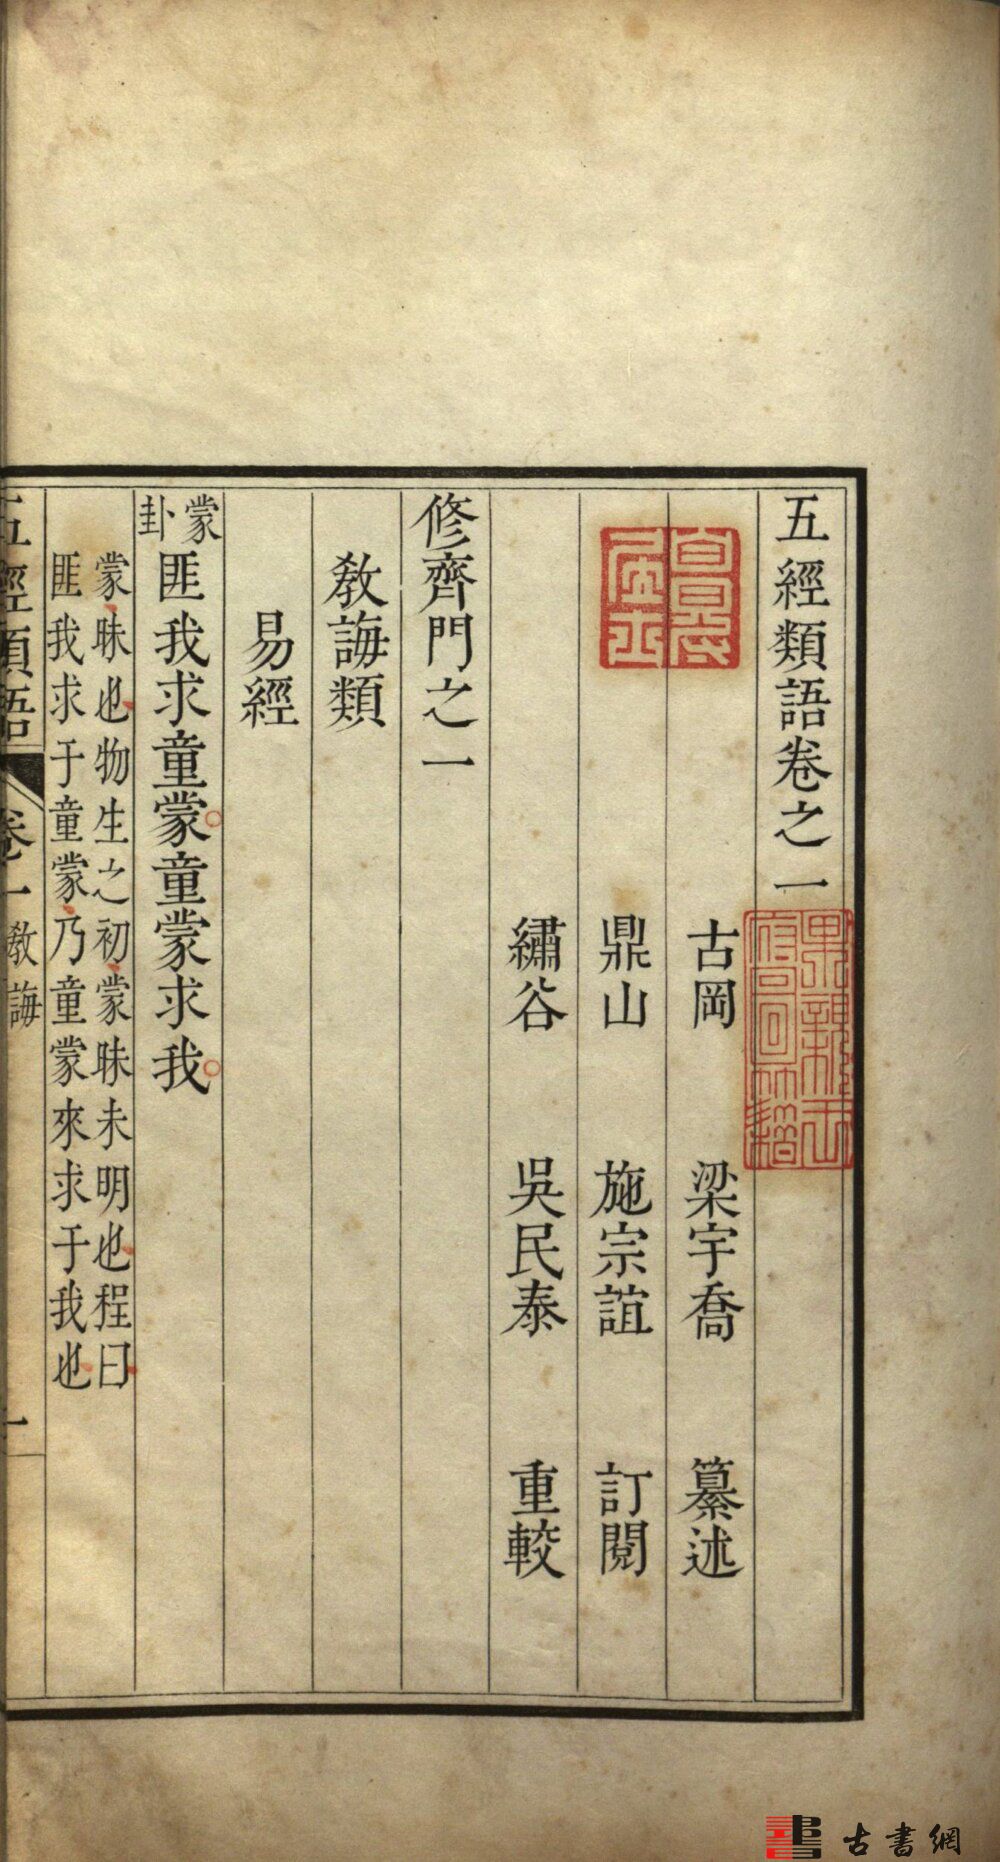 五經類語卷之一
古岡 梁宇喬 纂述
鼎山 施宗誼 訂閱
繡谷 吳民泰 重較
修齊門之一
教誨類
易經
蒙卦 匪我求童蒙童蒙求我
蒙昧也物生之初蒙昧未明也程曰
匪我求于童蒙乃童蒙來求于我也
五經類語 卷一 教誨 一
古書網